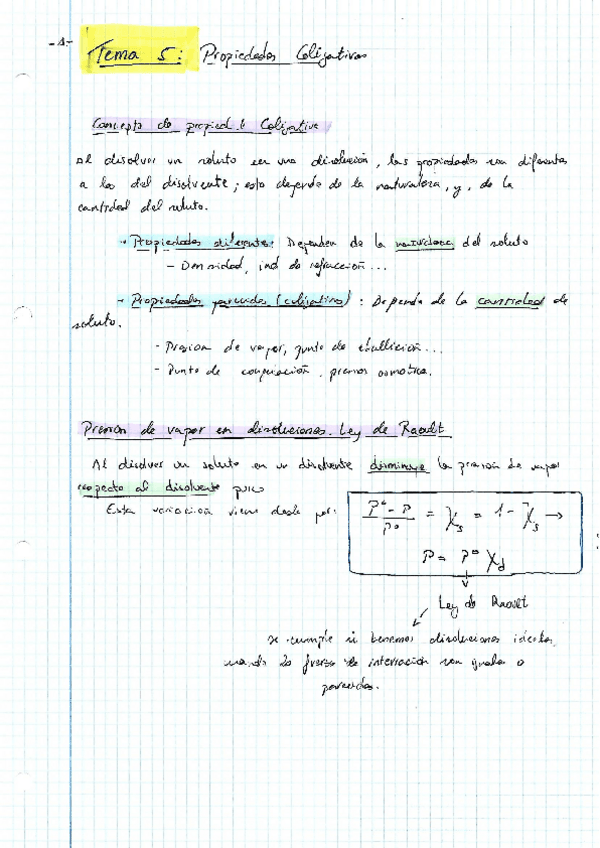 -1-
Tema 5: Propiedades Coligativas
Concepto de propied. Coligativa
Al disolver un soluto en una disolución, las propiedades son diferentes
a las del disolvente; esto depende de la naturaleza, y, de la
cantidad del soluto.
- Propiedades diferentes: Dependen de la naturaleza del soluto
- Densidad, ind de refracción...
- Propiedades parecidas (coligativas): Depende de la cantidad de
soluto.
- Presion de vapor, punto de ebullición...
- Punto de congelación, presion osmotica.
Presion de vapor en disoluciones. Ley de Raoult
Al disolver un soluto en un disolvente disminuye la presión de vapor
respecto al disolvente puro
Esta variacion viene dada por:
(P° - P) / P° = χs = 1 - χs →
P = P° χd
Ley de Raoult
se cumple si tenemos disoluciones ideales,
cuando la fuerza de interacción son iguales o
parecidas.